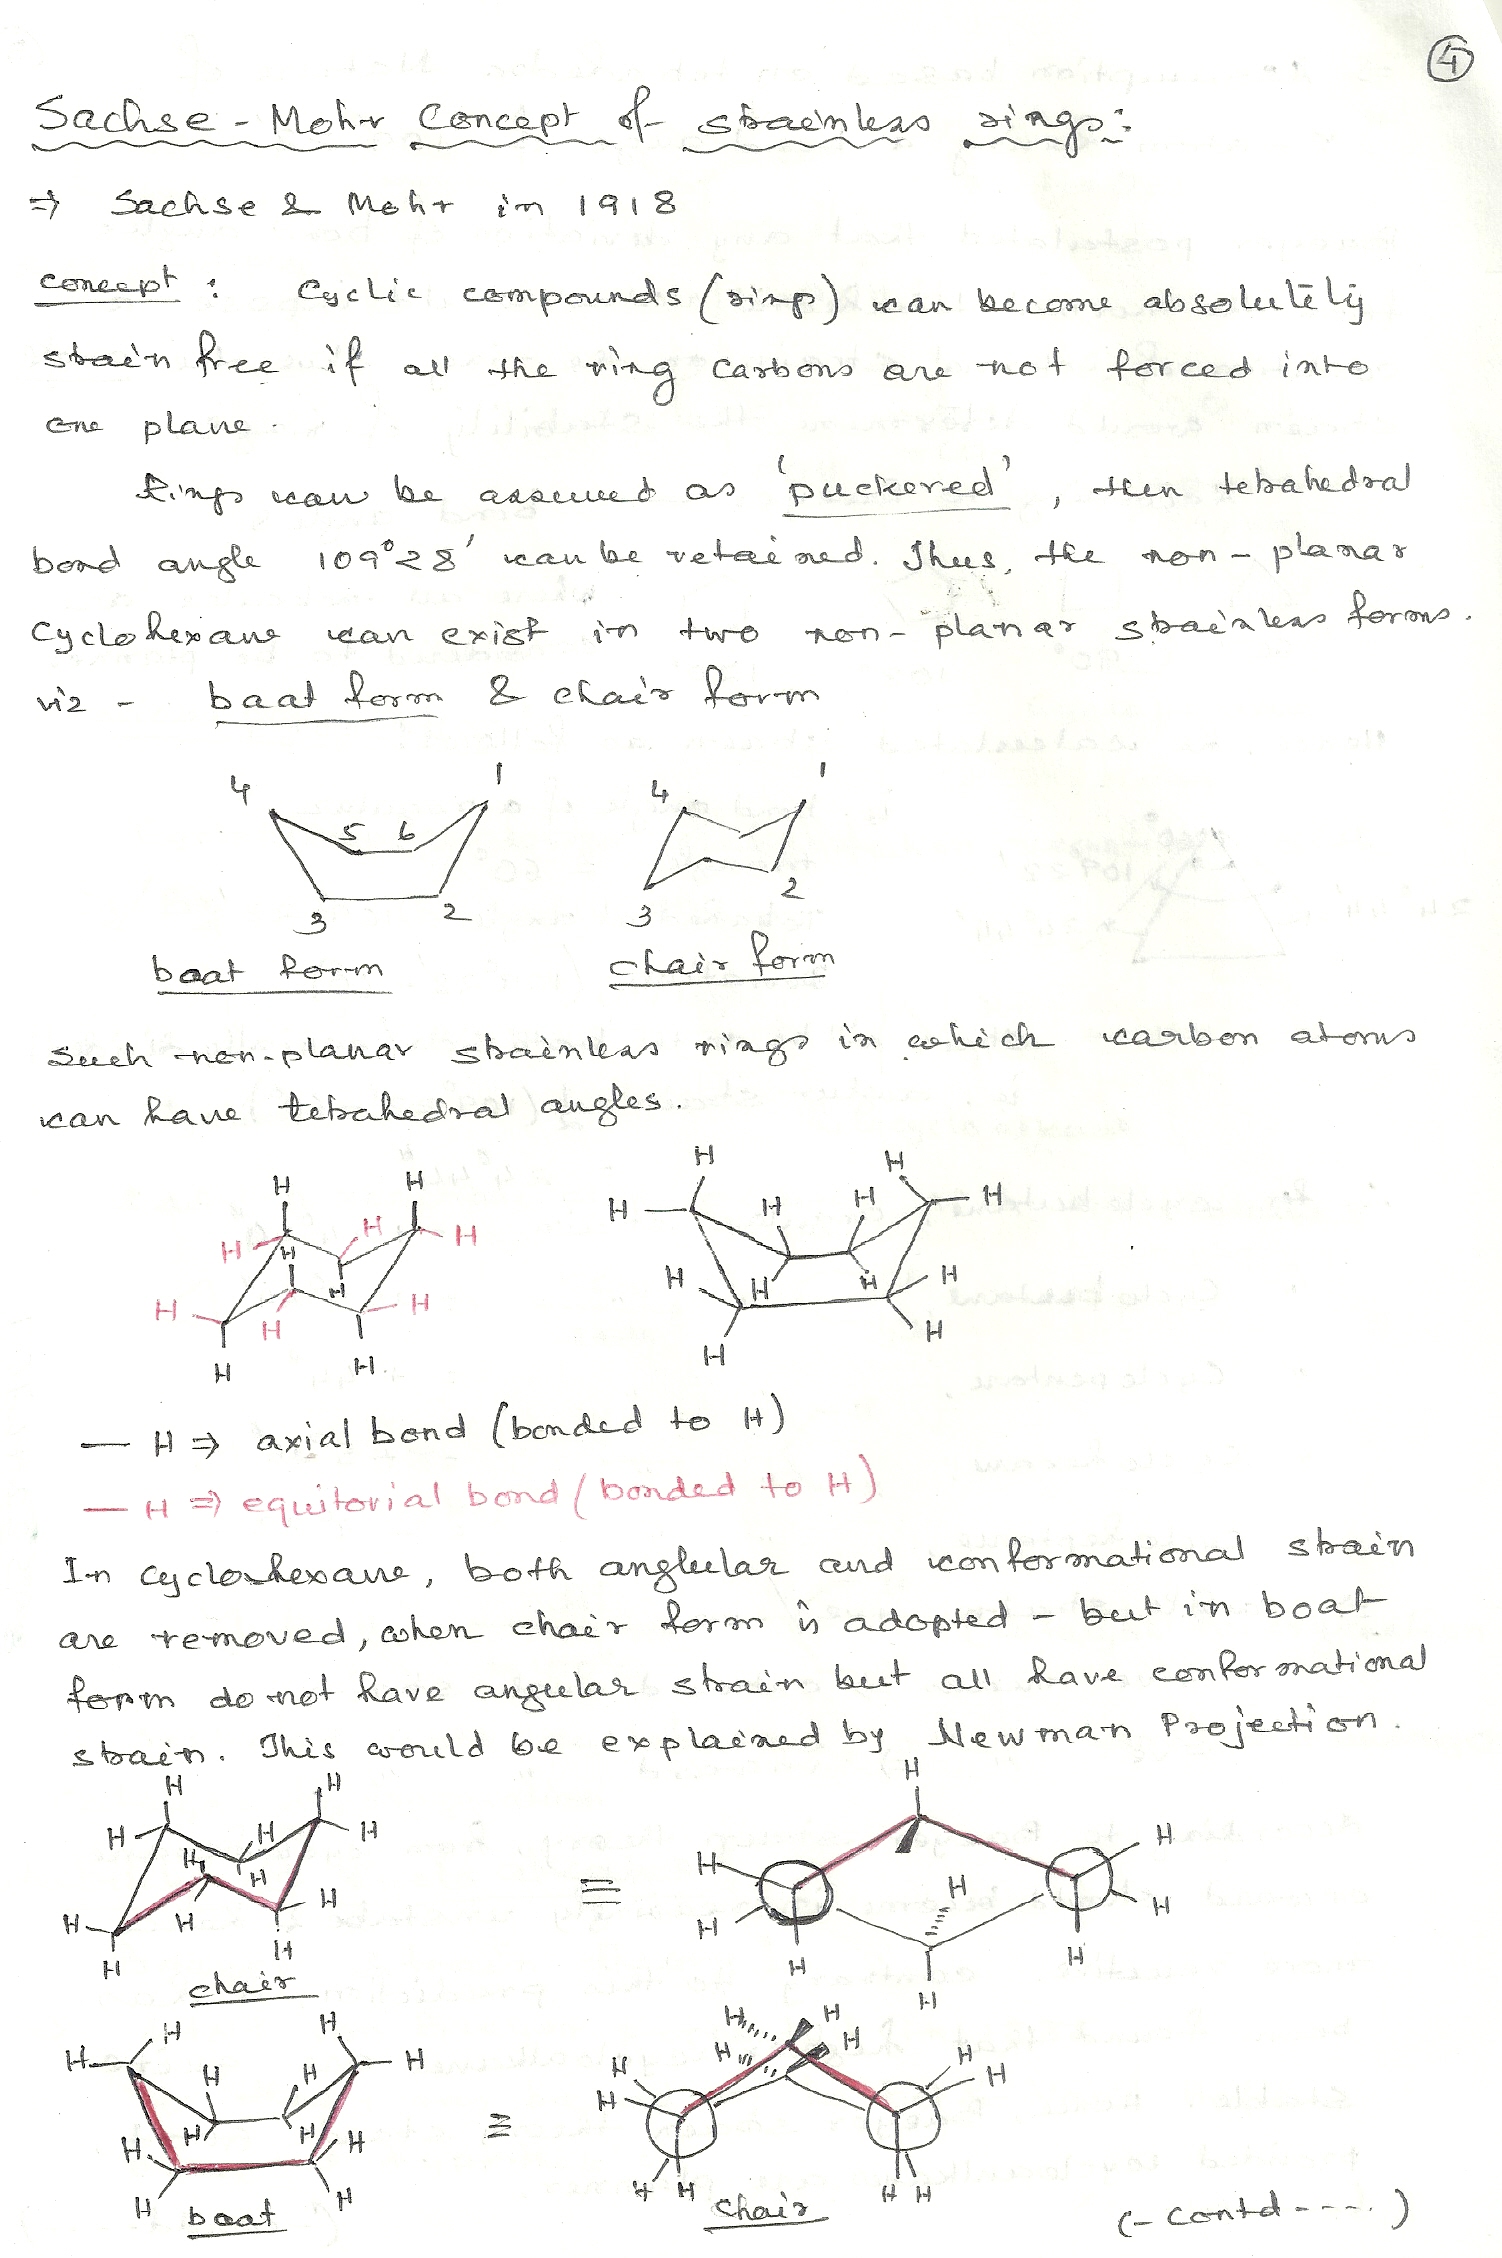 4
Sachse - Mohr Concept of strainless rings:
⇒ Sachse & Mohr in 1918
concept : Cyclic compounds (rings) can become absolutely
strain free if all the ring carbons are not forced into
one plane.
Rings can be assumed as 'puckered', then tetrahedral
bond angle 109°28' can be retained. Thus, the non-planar
cyclohexane can exist in two non-planar strainless forms.
viz - boat form & chair form
4 1 4 1
5 6
3 2 3 2
boat form chair form
Such non-planar strainless rings in which carbon atoms
can have tetrahedral angles.
H H H H
H H H H H H H
H H H H H H H
H H H H
H H H H
— H ⇒ axial bond (bonded to H)
— H ⇒ equitorial bond (bonded to H)
In cyclohexane, both anglular and conformational strain
are removed, when chair form is adopted - but in boat
form do not have angular strain but all have conformational
strain. This would be explained by Newman Projection.
H H H
H H H H H
H H H H
H H H H H
H H H H
H
chair
≡
H H H H
H H H H H H H H
H H H H
H H H H
H H H H H H
boat
≡
chair
(- contd ----)